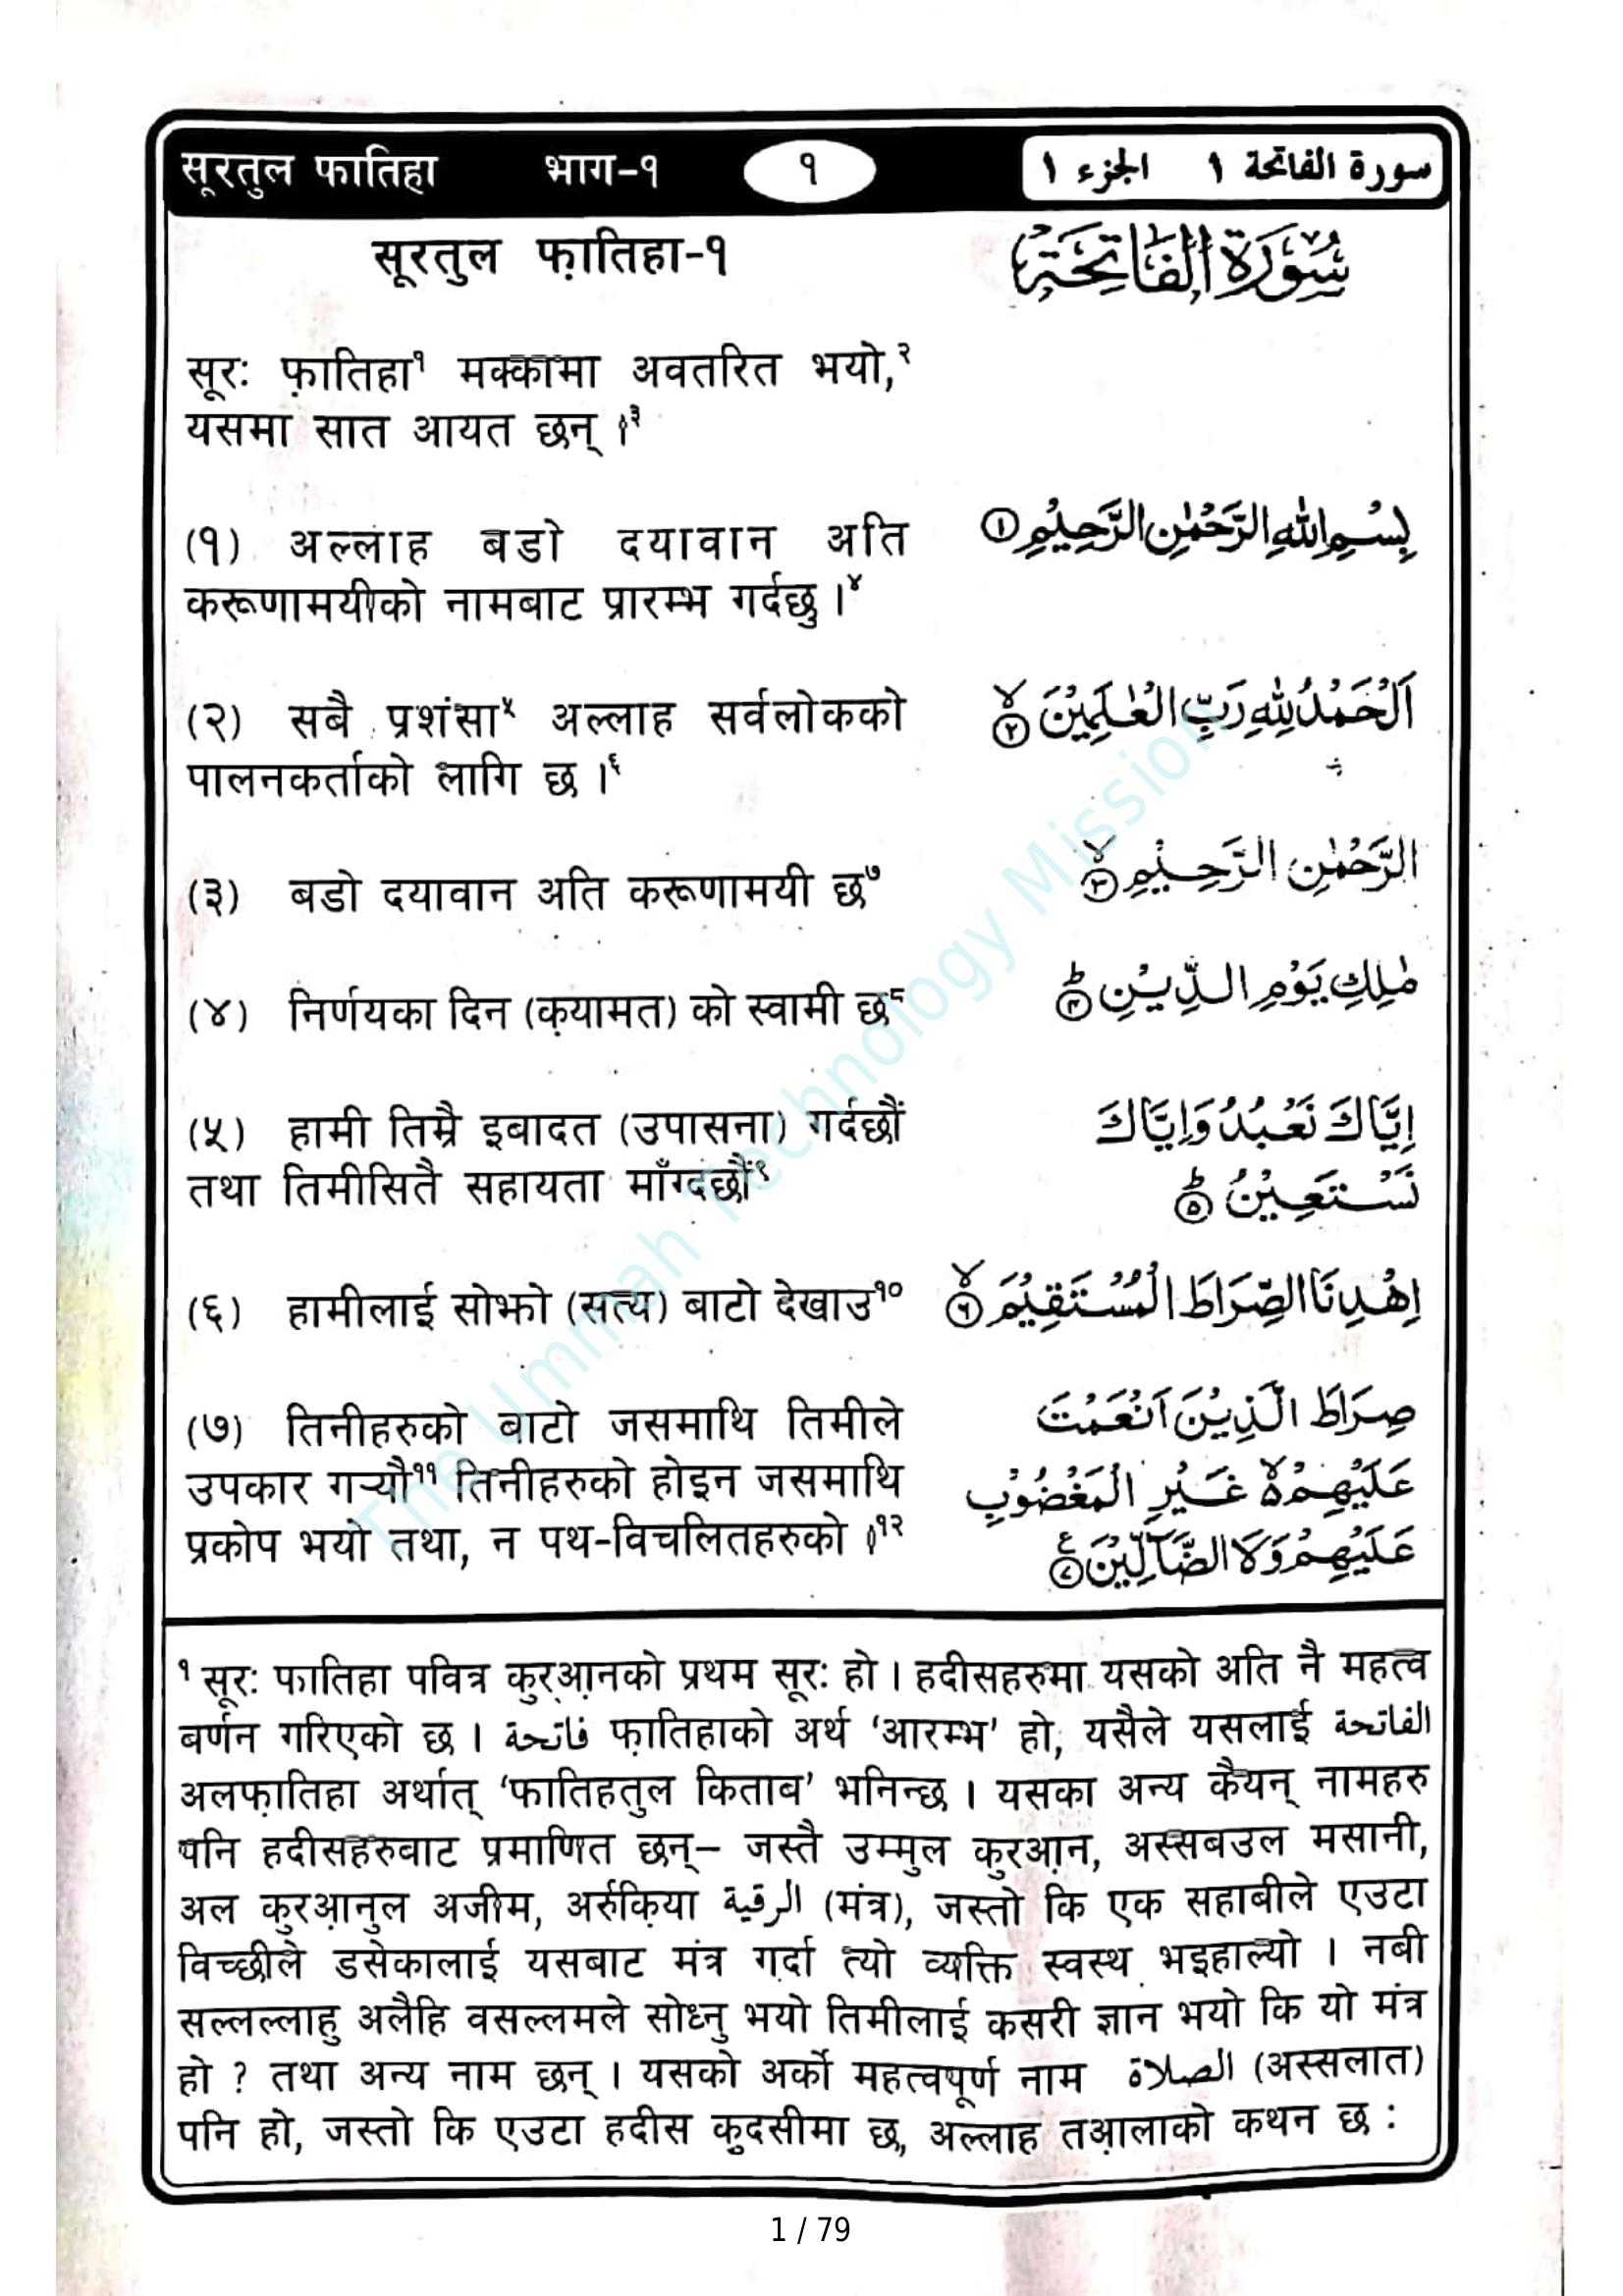 सूरतुल फातिहा भाग-१ १ سورة الفاتحة ١ الجزء ١
सूरतुल फ़ातिहा-१ سُوْرَةُ الْفَاتِحَةِ
सूरः फ़ातिहा¹ मक्कामा अवतरित भयो,²
यसमा सात आयत छन् ।³
(१) अल्लाह बडो दयावान अति بِسْمِ اللهِ الرَّحْمٰنِ الرَّحِيْمِ ①
करूणामयीको नामबाट प्रारम्भ गर्दछु ।⁴
(२) सबै प्रशंसा⁵ अल्लाह सर्वलोकको اَلْحَمْدُ لِلّٰهِ رَبِّ الْعٰلَمِيْنَ ②
पालनकर्ताको लागि छ ।⁶
(३) बडो दयावान अति करूणामयी छ⁷ الرَّحْمٰنِ الرَّحِيْمِ ③
(४) निर्णयका दिन (क़यामत) को स्वामी छ⁸ مٰلِكِ يَوْمِ الدِّيْنِ ④
(५) हामी तिम्रै इबादत (उपासना) गर्दछौं اِيَّاكَ نَعْبُدُ وَاِيَّاكَ
तथा तिमीसितै सहायता माँग्दछौं⁹ نَسْتَعِيْنُ ⑤
(६) हामीलाई सोझो (सत्य) बाटो देखाउ¹⁰ اِهْدِنَا الصِّرَاطَ الْمُسْتَقِيْمَ ⑥
(७) तिनीहरुको बाटो जसमाथि तिमीले صِرَاطَ الَّذِيْنَ اَنْعَمْتَ
उपकार गऱ्यौ¹¹ तिनीहरुको होइन जसमाथि عَلَيْهِمْ غَيْرِ الْمَغْضُوْبِ
प्रकोप भयो तथा, न पथ-विचलितहरुको ।¹² عَلَيْهِمْ وَلَا الضَّآلِّيْنَ ⑦
¹ सूरः फातिहा पवित्र कुर्आ़नको प्रथम सूरः हो । हदीसहरुमा यसको अति नै महत्व
बर्णन गरिएको छ । فاتحة फ़ातिहाको अर्थ ‘आरम्भ’ हो, यसैले यसलाई الفاتحة
अलफ़ातिहा अर्थात् ‘फातिहतुल किताब’ भनिन्छ । यसका अन्य कैयन् नामहरु
पनि हदीसहरुबाट प्रमाणित छन्– जस्तै उम्मुल कुरआ़न, अस्सबउल मसानी,
अल कुरआ़नुल अजीम, अर्रुक़िया الرقية (मंत्र), जस्तो कि एक सहाबीले एउटा
विच्छीले डसेकालाई यसबाट मंत्र गर्दा त्यो व्यक्ति स्वस्थ भइहाल्यो । नबी
सल्लल्लाहु अलैहि वसल्लमले सोध्नु भयो तिमीलाई कसरी ज्ञान भयो कि यो मंत्र
हो ? तथा अन्य नाम छन् । यसको अर्को महत्वपूर्ण नाम الصلاة (अस्सलात)
पनि हो, जस्तो कि एउटा हदीस कुदसीमा छ, अल्लाह तआ़लाको कथन छ :
The Ummah Technology Mission
1 / 79